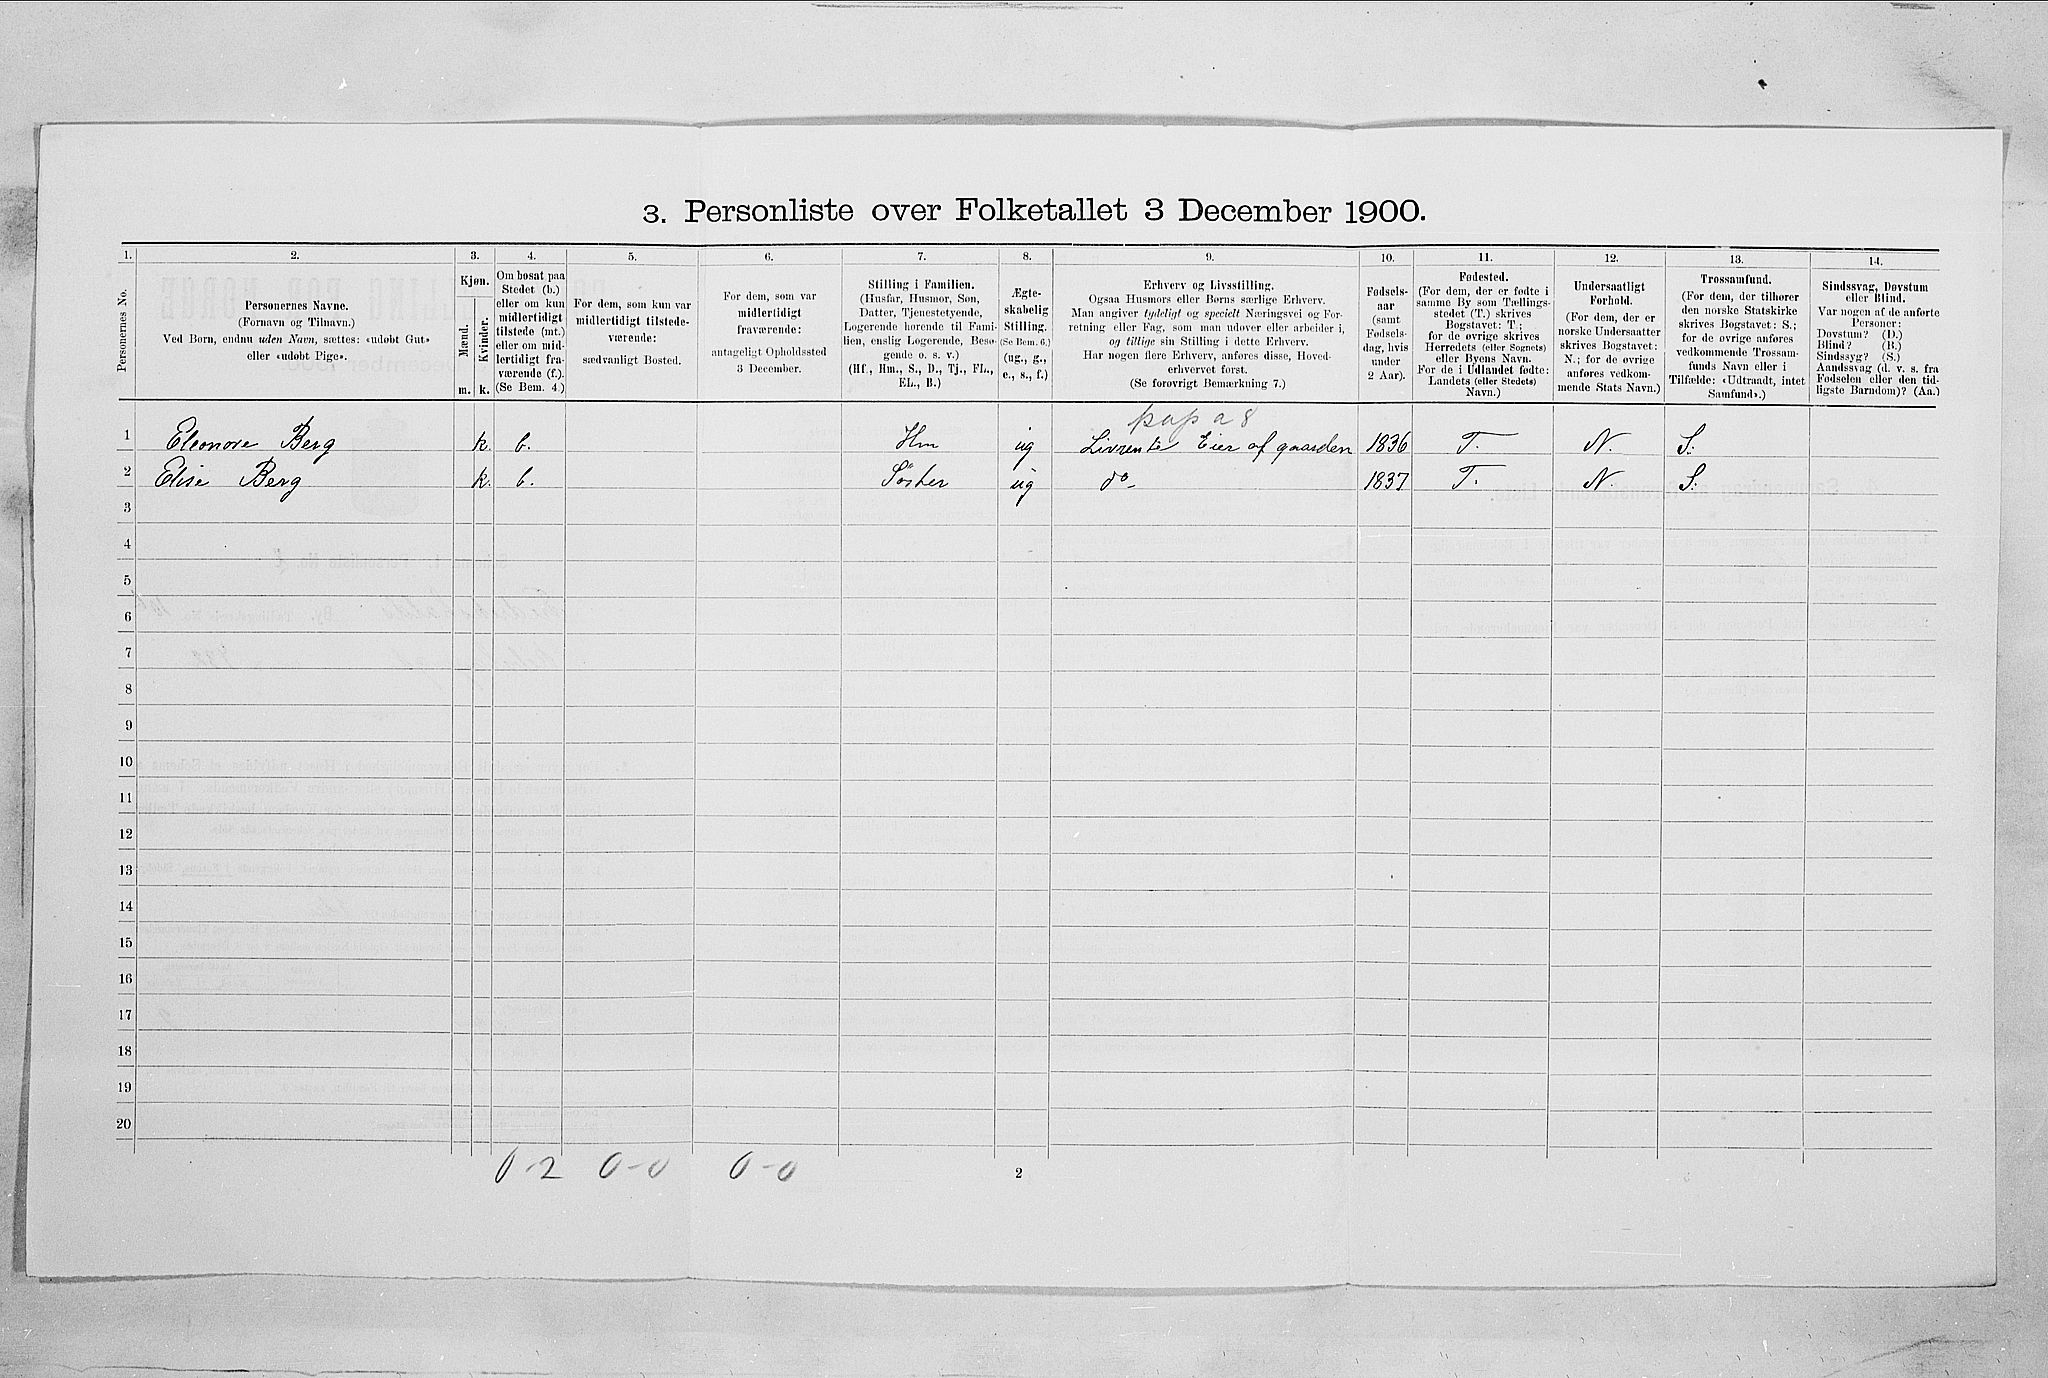 3. Personliste over Folketallet 3 December 1900.
1. 2. 3. 4. 5. 6. 7. 8. 9. 10. 11. 12. 13. 14.
Personernes No.
Personernes Navne.
(Fornavn og Tilnavn.)
Ved Børn, endnu uden Navn, sættes: «udøbt Gut»
eller «udøbt Pige».
Kjøn.
Mænd.
Kvinder.
m. k.
Om bosat paa
Stedet (b.)
eller om kun
midlertidigt
tilstede (mt.)
eller om mid-
lertidigt fra-
værende (f.).
(Se Bem. 4.)
For dem, som kun var
midlertidigt tilstede-
værende:
sædvanligt Bosted.
For dem, som var
midlertidigt
fraværende:
antageligt Opholdssted
3 December.
Stilling i Familien.
(Husfar, Husmor, Søn,
Datter, Tjenestetyende,
Logerende hørende til Fami-
lien, enslig Logerende, Besø-
gende o. s. v.)
(Hf., Hm., S., D., Tj., FL.,
EL., B.)
Ægte-
skabelig
Stilling.
(Se Bem. 6.)
(ug., g.,
e., s., f.)
Erhverv og Livsstilling.
Ogsaa Husmors eller Børns særlige Erhverv.
Man angiver tydeligt og specielt Næringsvei og For-
retning eller Fag, som man udøver eller arbeider i,
og tillige sin Stilling i dette Erhverv.
Har nogen flere Erhverv, anføres disse, Hoved-
erhvervet først.
(Se forøvrigt Bemærkning 7.)
Fødsels-
aar
(samt
Fødsels-
dag, hvis
under
2 Aar).
Fødested.
(For dem, der er fødte i
samme By som Tællings-
stedet (T.) skrives
Bogstavet: T.;
for de øvrige skrives
Herredets (eller Sognets)
eller Byens Navn.
For de i Udlandet fødte:
Landets (eller Stedets)
Navn.)
Undersaatligt
Forhold.
(For dem, der er
norske Undersaatter
skrives Bogstavet:
N.; for de øvrige
anføres vedkom-
mende Stats Navn.)
Trossamfund.
(For dem, der tilhører
den norske Statskirke
skrives Bogstavet: S.;
for de øvrige anføres
vedkommende Trossam-
funds Navn eller i
Tilfælde: «Udtraadt, intet
Samfund».)
Sindssvag, Døvstum
eller Blind.
Var nogen af de anførte
Personer:
Døvstum? (D.)
Blind? (B.)
Sindssyg? (S.)
Aandssvag (d. v. s. fra
Fødselen eller den tid-
ligste Barndom)? (Aa.)
pap a 8
1 Eleonore Berg k. b. Hm ug Livrente Eier af gaarden 1836 T. N. S.
2 Elise Berg k. b. Söster ug do 1837 T. N. S.
3
4
5
6
7
8
9
10
11
12
13
14
15
16
17
18
19
20
0-2 0-0 0-0
2